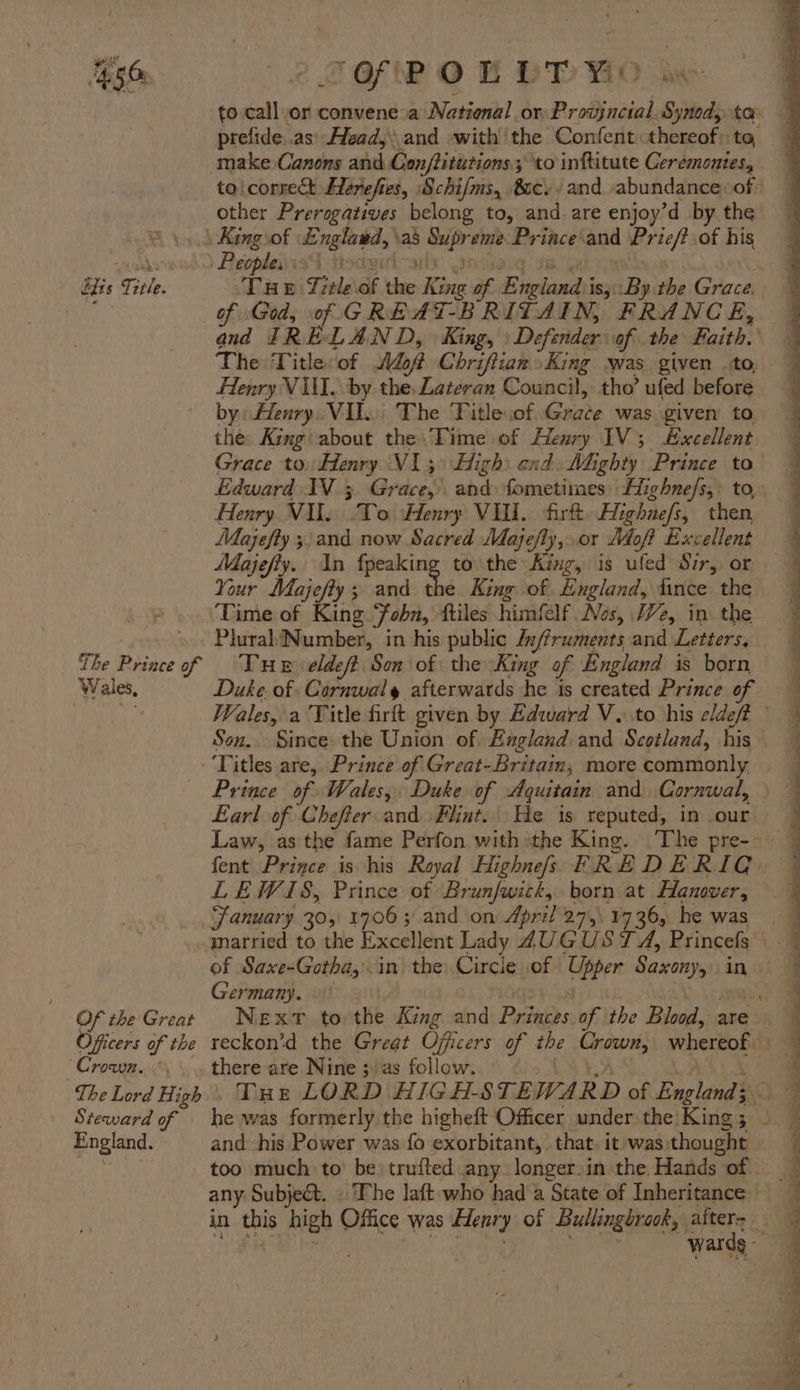 456 Of POLITY
to call or convene a National or Provincial Synod, to
preſide as Head, and with the Conſent thereof to
make Canons and Conſtitutions; to inſtitute Ceremonies,
to correct Hereſies, Schiſms, &c. and abundance of
other Prerogatives belong to, and are enjoy'd by the
King of England, as Supreme Prince and Prieſt of his
People.
His Title. THE Title of the King of England is, By the Grace
of God, of GREAT-BRITAIN, FRANCE,
and IRELAND, King, Defender of the Faith.
The Title of Moſt Chriſtian King was given to
Henry VIII. by the Lateran Council, tho' uſed before
by Henry VII. The Title of Grace was given to
the King about the Time of Henry IV; Excellent
Grace to Henry VI; High and Mighty Prince to
Edward IV; Grace, and ſometimes Highneſs, to
Henry VII. To Henry VIII. firſt Highneſs, then
Majeſty; and now Sacred Majeſty, or Moſt Excellent
Majeſty. In ſpeaking to the King, is uſed Sir, or
Your Majeſty; and the King of England, ſince the
Time of King John, ſtiles himſelf Nos, We, in the
Plural Number, in his public Inſtruments and Letters.
The Prince of THE eldeſt Son of the King of England is born
Wales. Duke of Cornwal, afterwards he is created Prince of
Wales, a Title firſt given by Edward V. to his eldeſt
Son. Since the Union of England and Scotland, his
Titles are, Prince of Great-Britain, more commonly
Prince of Wales, Duke of Aquitain and Cornwal,
Earl of Cheſter and Flint. He is reputed, in our
Law, as the ſame Perſon with the King. The pre-
ſent Prince is his Royal Highneſs FREDERIC
LEWIS, Prince of Brunſwick, born at Hanover,
January 30, 1706; and on April 27, 1736, he was
married to the Excellent Lady AUGUSTA, Princeſs
of Saxe-Gotha, in the Circle of Upper Saxony, in
Germany.
Of the Great NEXT to the King and Princes of the Blood, are
Officers of the reckon'd the Great Officers of the Crown, whereof
Crown. there are Nine; as follow.
The Lord High THE LORD HIGH-STEWARD of England;
Steward of he was formerly the higheſt Officer under the King;
England. and his Power was ſo exorbitant, that it was thought
too much to be truſted any longer in the Hands of
any Subject. The laſt who had a State of Inheritance
in this high Office was Henry of Bullingbrook, after-
wards